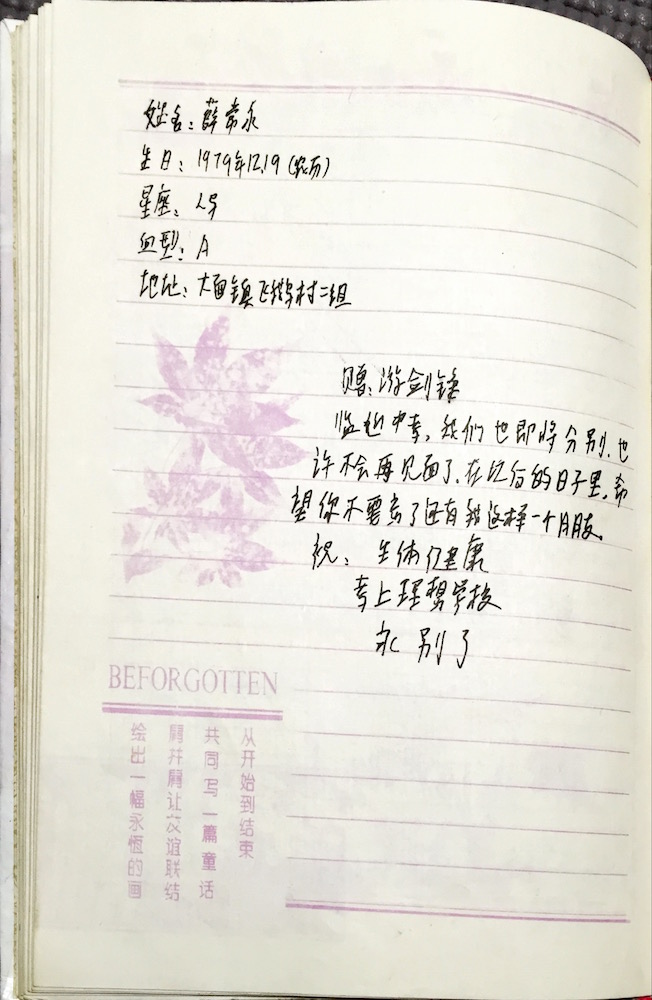 姓名：薛常永
生日：1979年12.19（农历）
星座：
血型：A
地址：大面镇飞鹅村二组
赠：游剑锋
临近中考，我们也即将分别，也
许不会再见面了，在以后的日子里，希
望你不要忘了还有我这样一个朋友。
祝：生体健康
考上理想学校
永别了
BEFORGOTTEN
从开始到结束
共同写一篇童话
肩并肩让友谊联结
绘出一幅永恒的画